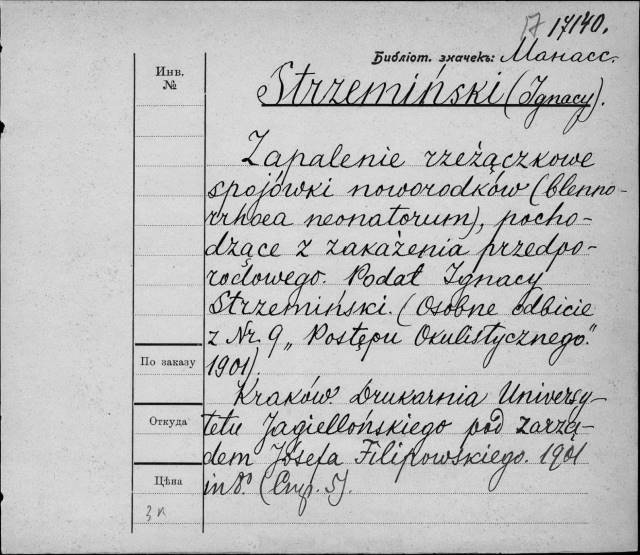 17 17140.
Библіот. значекъ: Манасс.
Инв.
№
Strzemiński (Ignacy).
Zapalenie rzeżączkowe
spojówki noworodków (blenno-
rrhoea neonatorum), pocho-
dzące z zakażenia przedpo-
rodowego. Podał Ignacy
Strzemiński. (Osobne odbicie
z Nr. 9 „Postępu Okulistycznego"
1901).
По заказу
Kraków Drukarnia Uniwersy-
tetu Jagiellońskiego pod zarzą-
Откуда
dem Josefa Filipowskiego. 1901
in 8° (Стр. 5).
Цѣна
3к